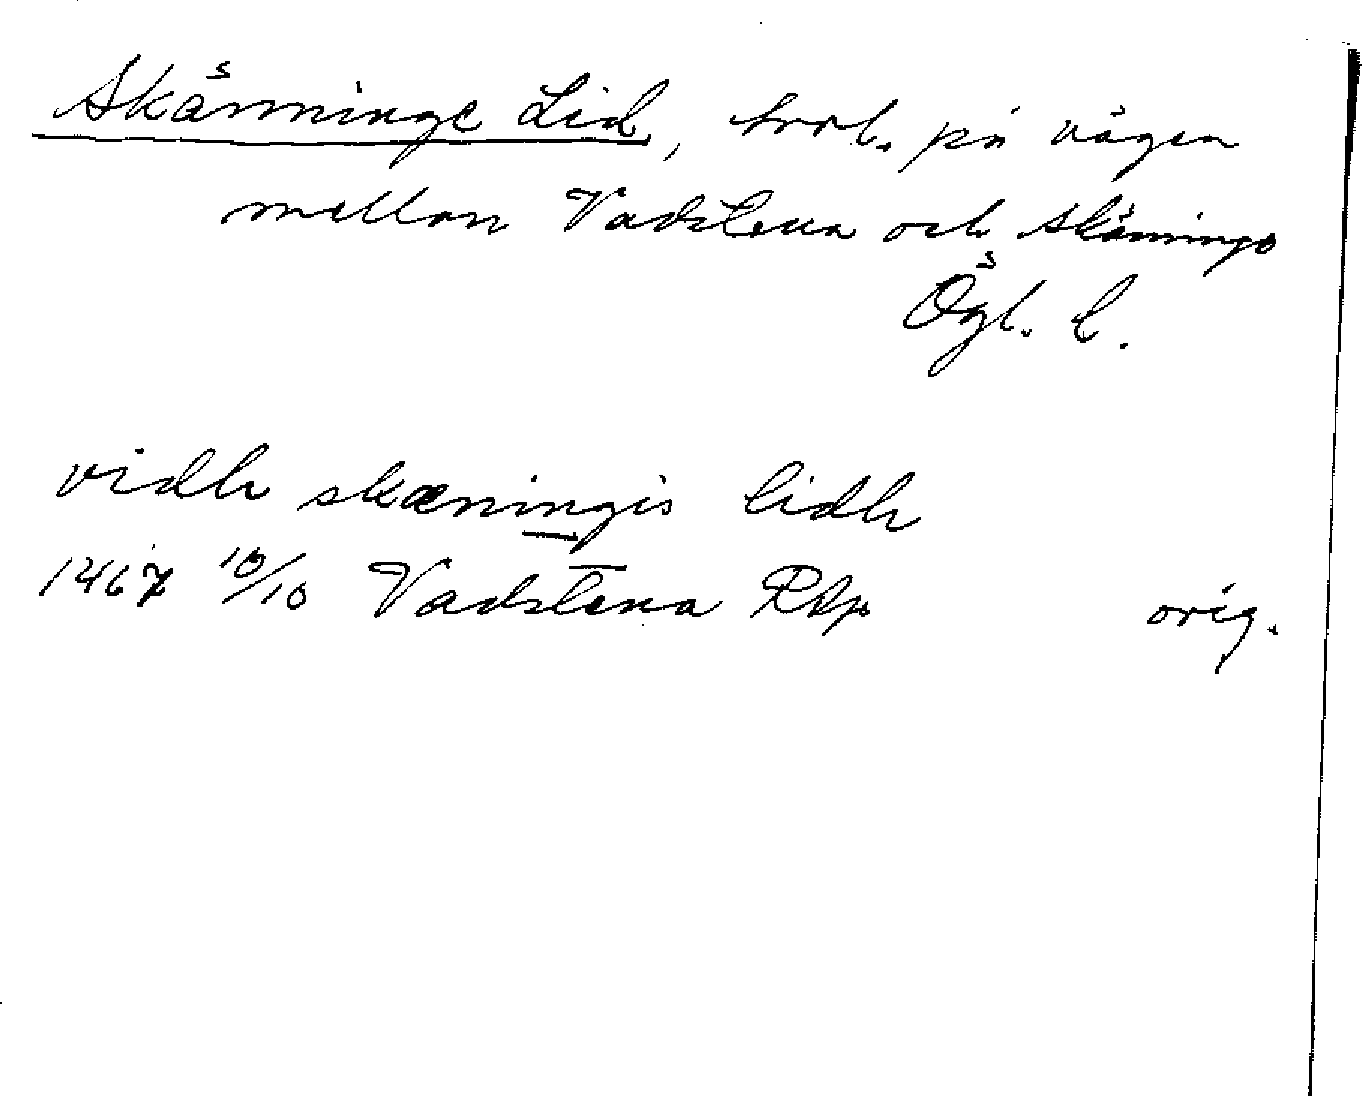 Skänninge Lid, trol. på vägen
mellan Vadstena och Skänninge
Ögl. l.
vidh skæningis lidh
1467 10/10 Vadstena RAp orig.